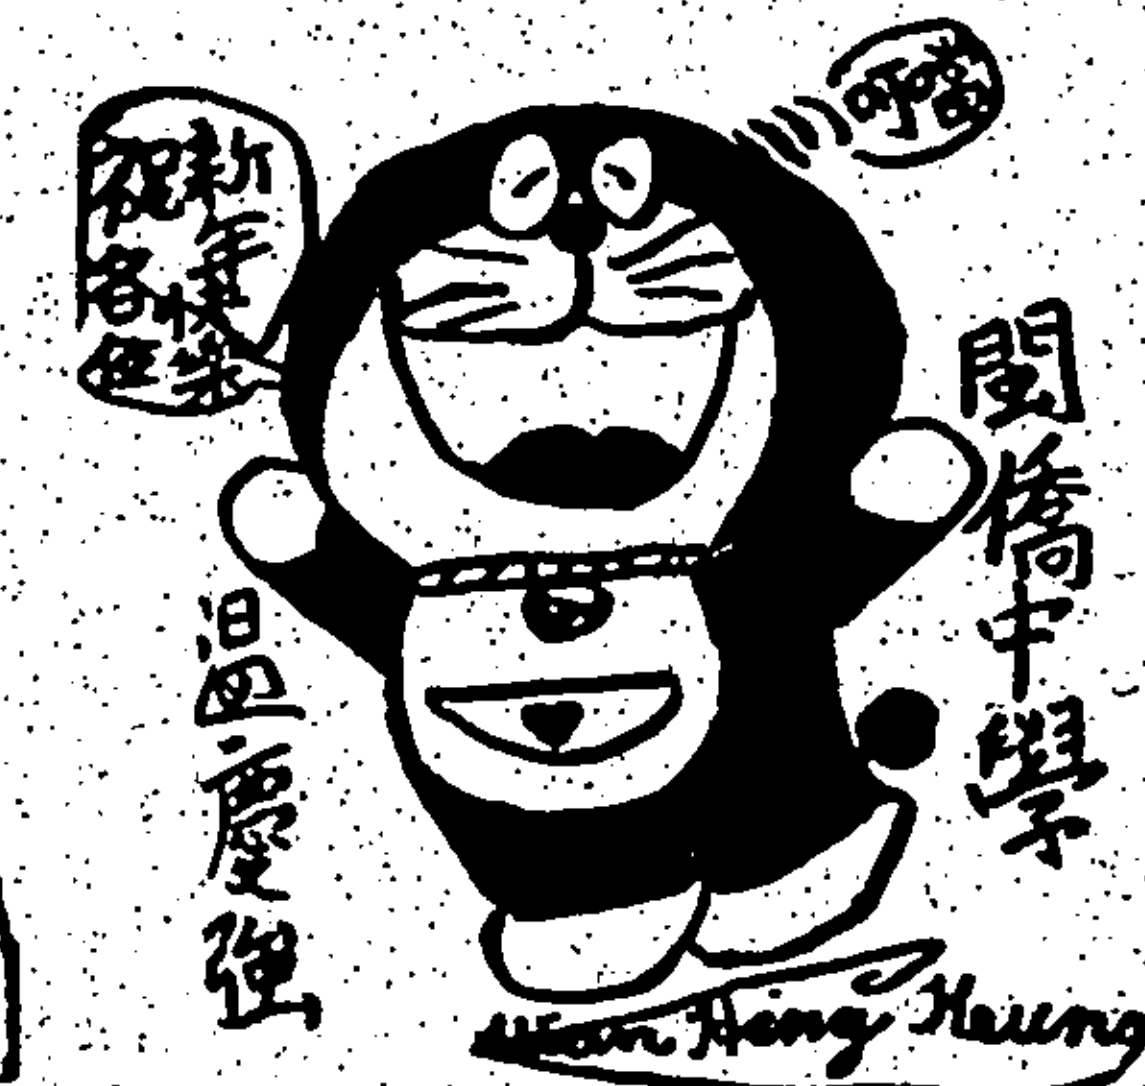 叮噹
祝各位
新年快樂
閩僑中學
温慶強
Wan Hing Keung